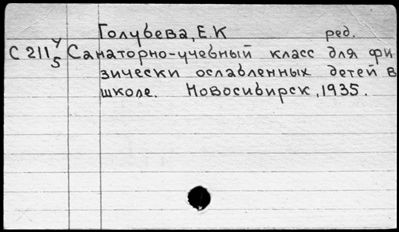 Голубева, Е.К ред.
С 211 У/5 Санаторно-учебный класс для фи
зически ослабленных детей в
школе. Новосибирск, 1935.